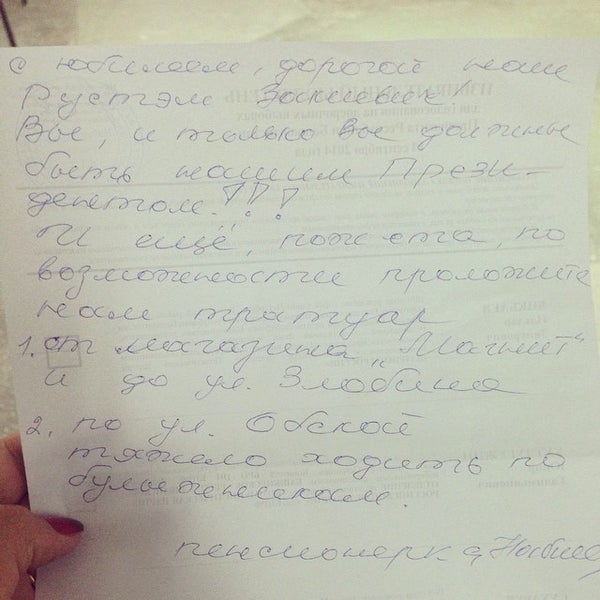 С юбилеем, дорогой наш
Рустэм Закиевич!
Вы, и только Вы должны
быть нашим Прези-
дентом!!!
И ещё, пож-ста, по
возможности проложите
нам тратуар
1. от магазина „Магнит"
и до ул. Злобина
2. по ул. Обской
тяжело ходить по
булыжникам.
пенсионерка